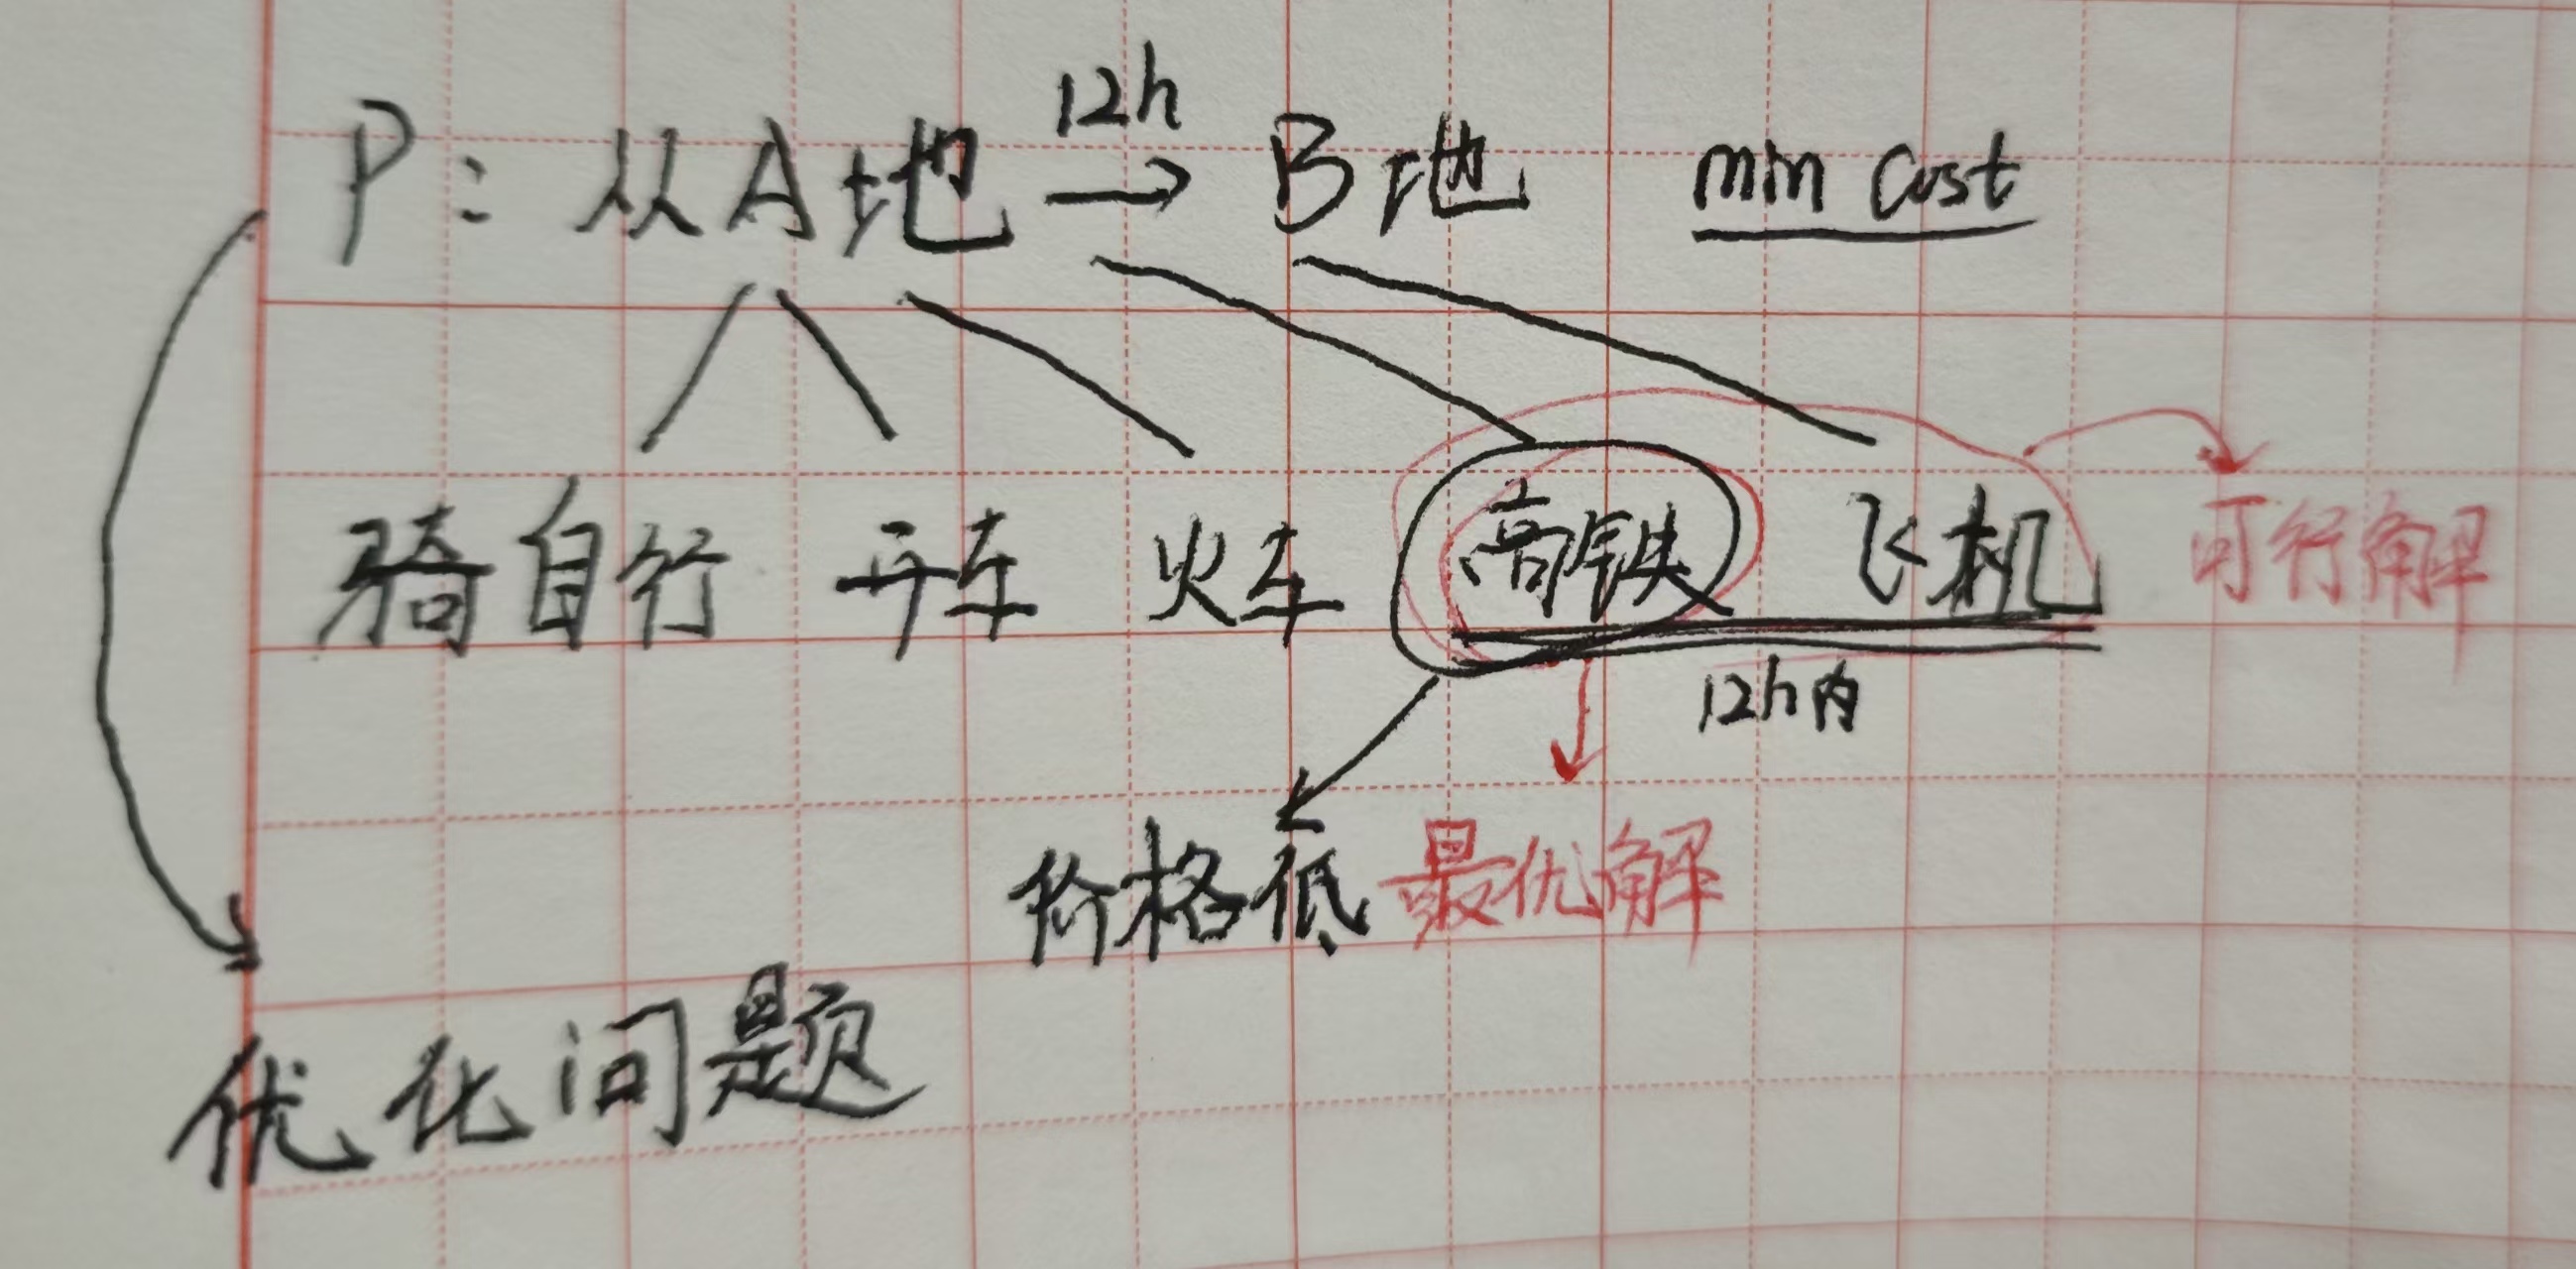 12h
P: 从A地 → B地 min cost
骑自行 开车 火车 高铁 飞机 可行解
12h内
价格低 最优解
优化问题